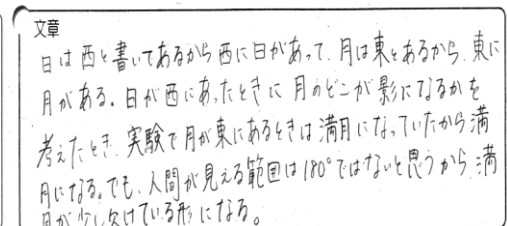 文章
日は西と書いてあるから西に日があって、月は東とあるから、東に
月がある。日が西にあったときに月のどこが影になるかを
考えたとき、実験で月が東にあるときは満月になっていたから満
月になる。でも、人間が見える範囲は180°ではないと思うから、満
月が少し欠けている形になる。